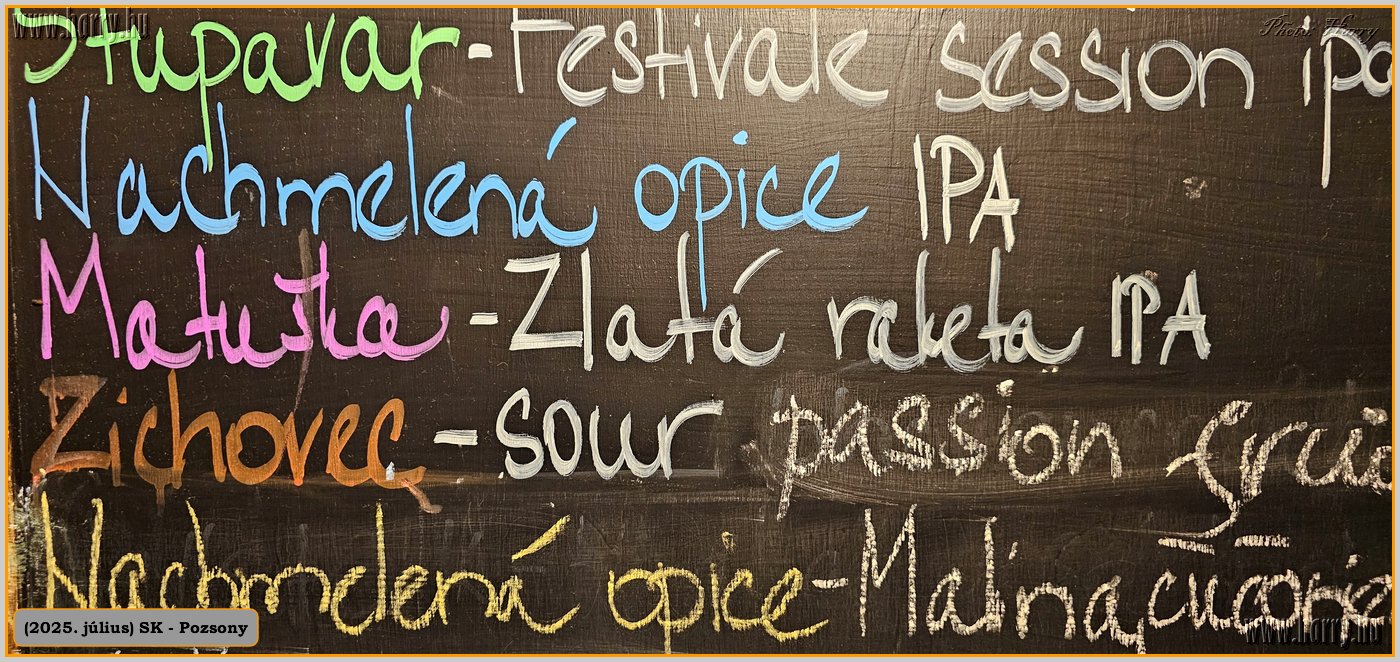 www.harry.hu
Photo: Harry
Stupavar - Festivale session ipa
Nachmelená opice IPA
Matuška - Zlatá raketa IPA
Zichovec - sour passion frui
Nachmelená opice - Malina,
(2025. július) SK - Pozsony
www.harry.hu